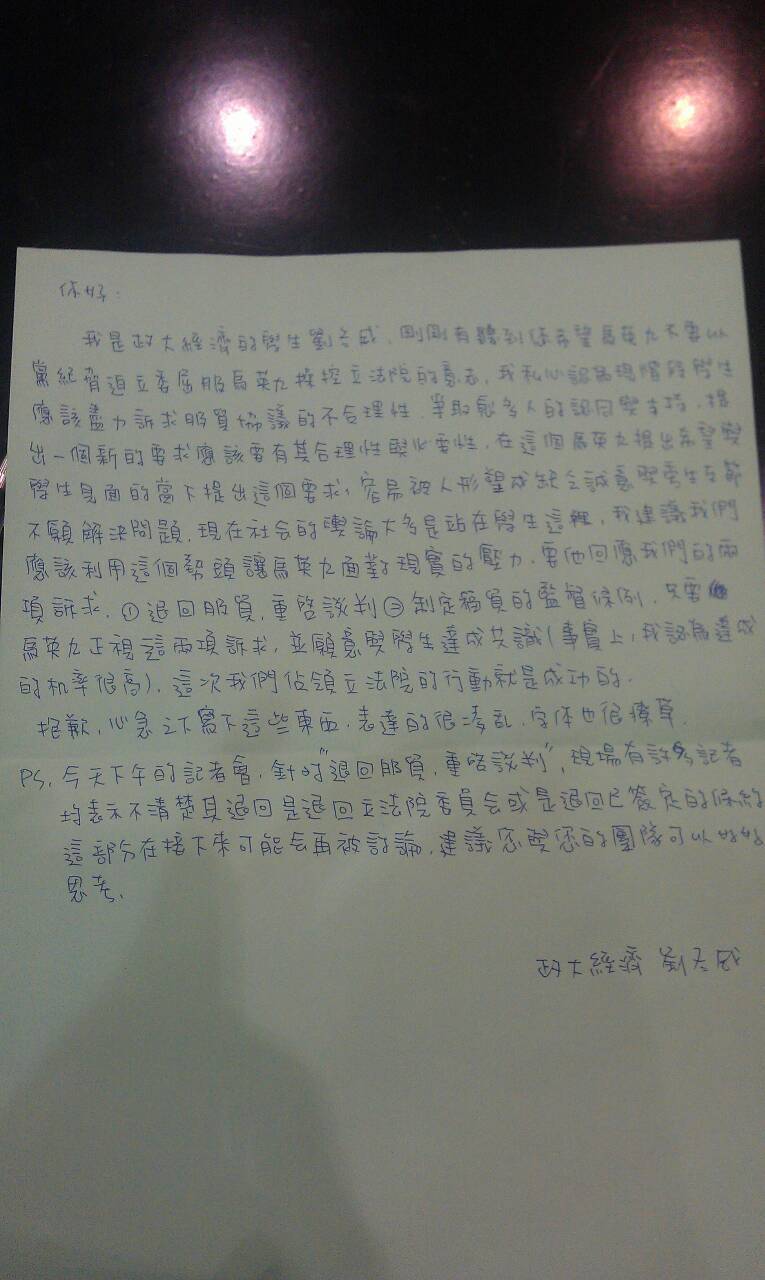 你好：
我是政大經濟的學生劉 威，剛剛有聽到你希望馬英九不要以
黨紀脅迫立委屈服馬英九操控立法院的意志，我私心認為現階段學生
應該盡力訴求服貿協議的不合理性，爭取愈多人的認同與支持，提
出一個新的要求應該要有其合理性與必要性，在這個馬英九提出希望與
學生見面的當下提出這個要求，容易被人形塑成缺乏誠意與旁生支節
不願解決問題，現在社会的輿論大多是站在學生這裡，我建議我們
應該利用這個勢頭讓馬英九面對現實的壓力，要他回應我們的兩
項訴求，①退回服貿，重啓談判②制定 貿的監督條例，只要
馬英九正視這兩項訴求，並願意與學生達成共識(事實上，我認為達成
的机率很高)，這次我們佔領立法院的行動就是成功的。
抱歉，心急之下寫下這些東西，表達的很凌乱，字体也很潦草
PS，今天下午的記者會，針對"退回服貿，重啓談判"，現場有許多記者
均表示不清楚其退回是退回立法院委員会或是退回已簽定的條約
這部分在接下來可能会再被討論，建議您與您的團隊可以好好
思考，
政大經濟 劉 威